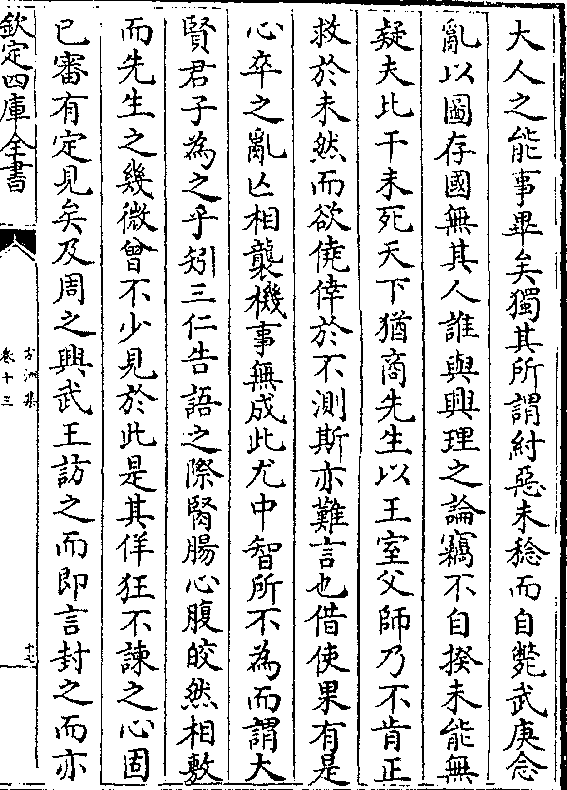 大人之能事畢矣獨其所謂紂惡未稔而自斃武庚念
亂以圖存國無其人誰與興理之論竊不自揆未能無
疑夫比干未死天下猶商先生以王室父師乃不肯正
救於未然而欲僥倖於不測斯亦難言也借使果有是
心卒之亂亾相襲機事無成此尤中智所不為而謂大
賢君子為之乎矧三仁告語之際腎腸心腹皎然相敷
而先生之幾微曾不少見於此是其佯狂不諫之心固
已審有定見矣及周之興武王訪之而即言封之而亦
欽定四庫全書
方洲集
卷十三
十七